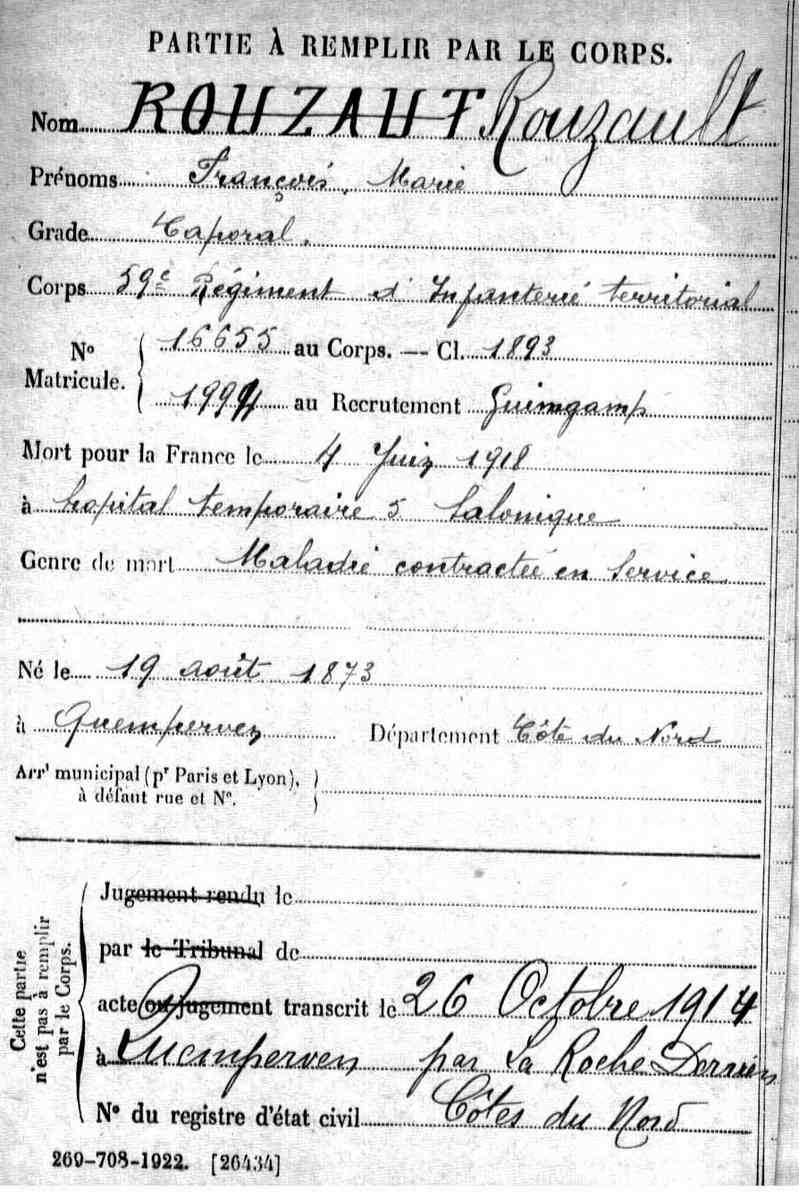 PARTIE À REMPLIR PAR LE CORPS.
Nom ROUZAUT Rouzault
Prénoms François, Marie
Grade Caporal.
Corps 59e Régiment d'Infanterie territorial
No Matricule. 16655 au Corps. — Cl. 1893
1994 au Recrutement Guimgamp
Mort pour la France le 4 Juin 1918
à hopital temporaire 5 Salonique
Genre de mort Maladie contractée en Service
Né le 19 août 1873
à Quemperven Département Côte du Nord
Arrt municipal (pr Paris et Lyon),
à défaut rue et No.
Cette partie
n'est pas à remplir
par le Corps.
Jugement rendu le
par le Tribunal de
acte ou jugement transcrit le 26 Octobre 1914
à Quemperven par La Roche Derrien
No du registre d'état civil Côtes du Nord
269-708-1922. [26434]